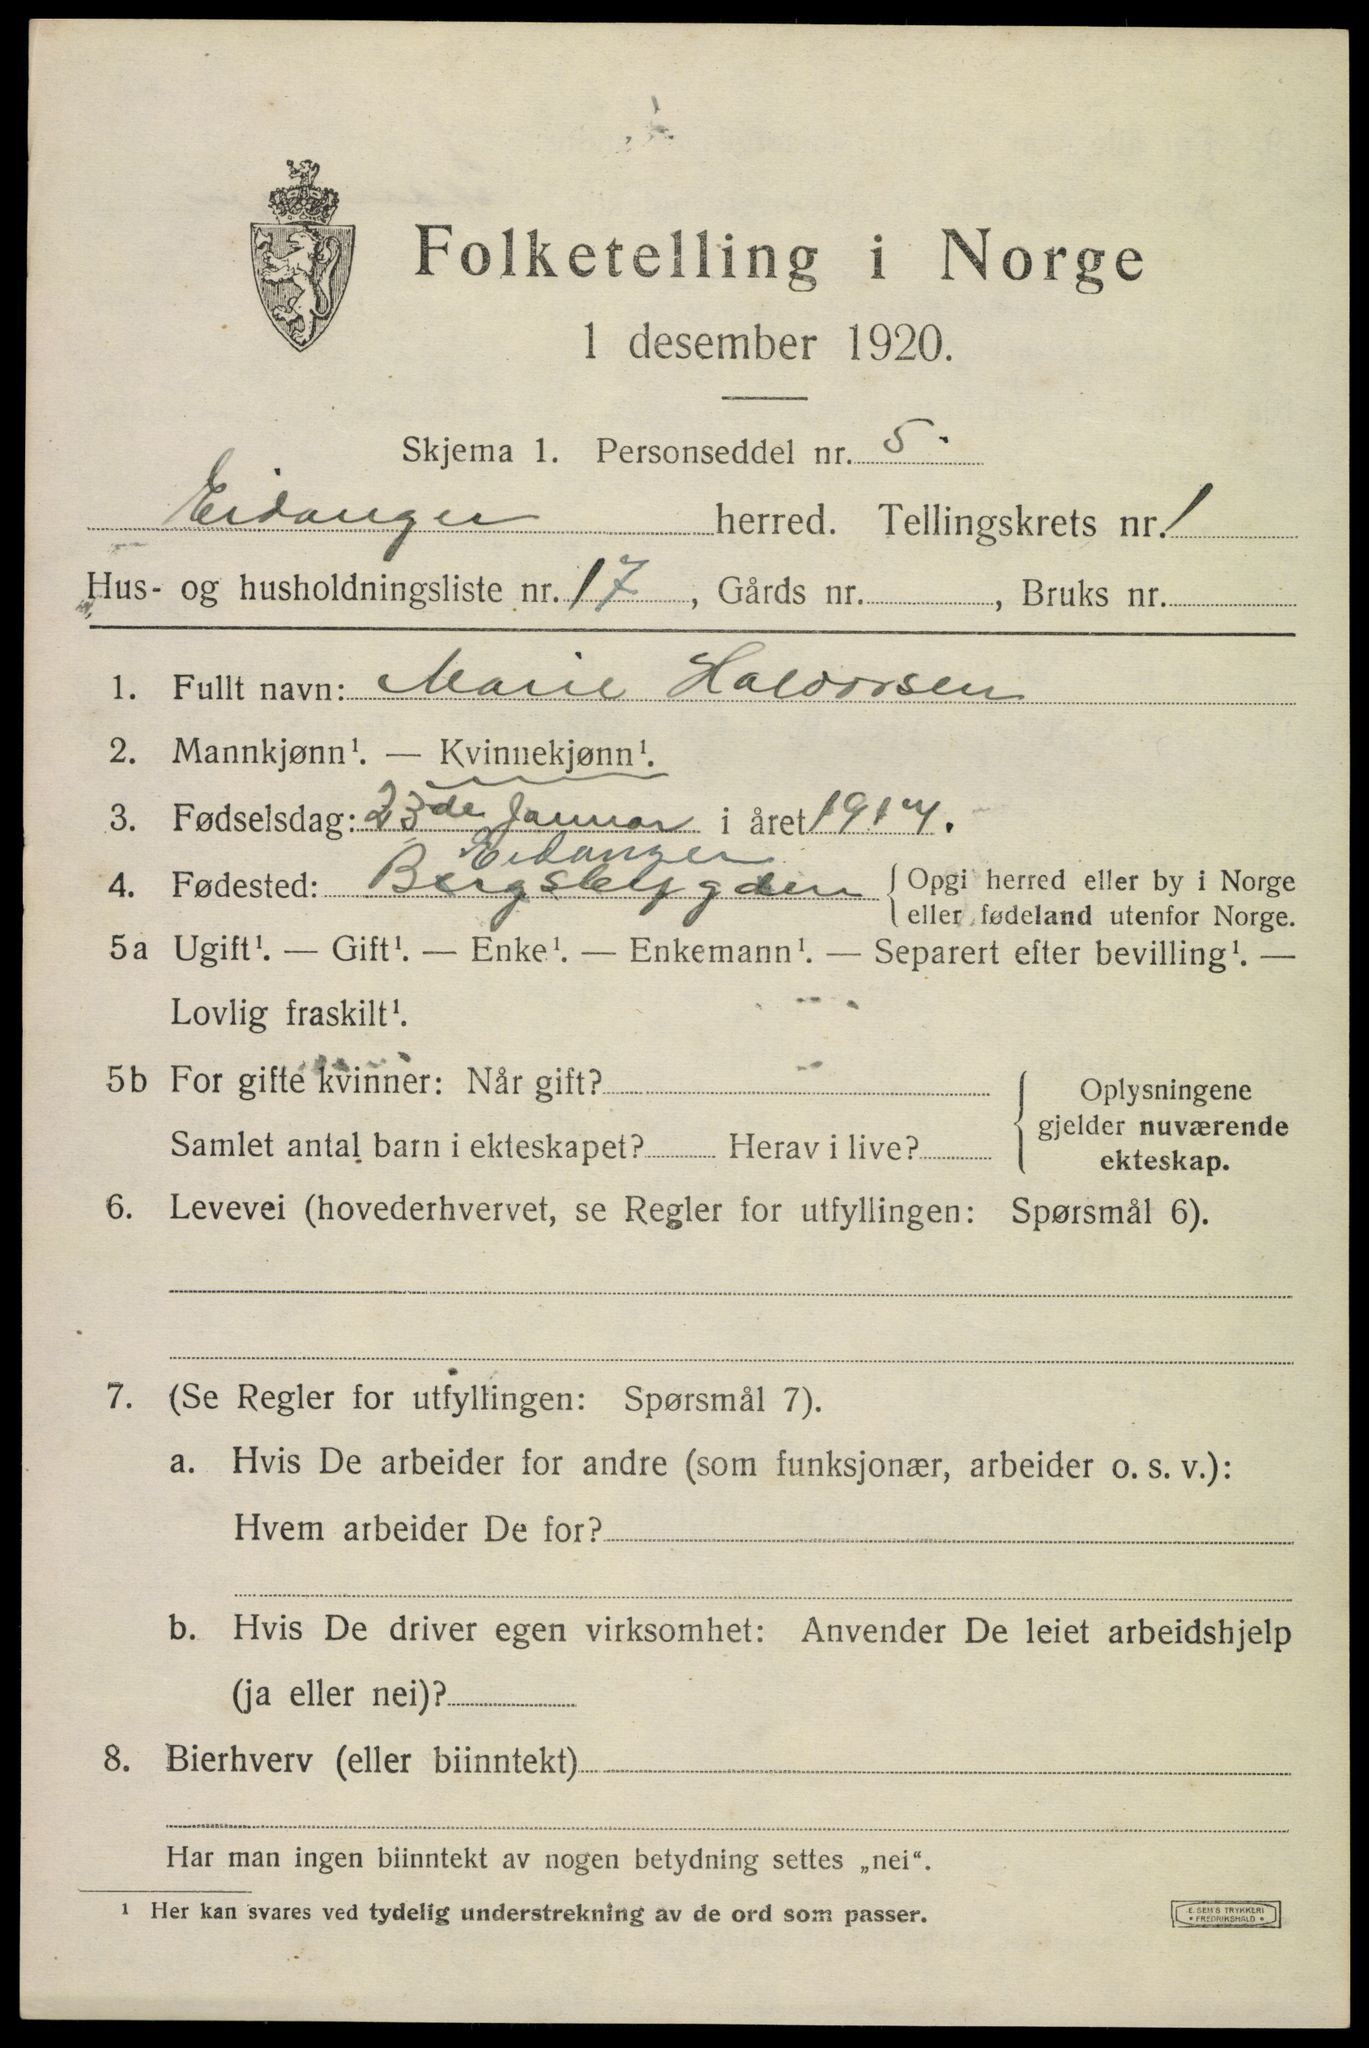 Folketelling i Norge
1 desember 1920.
Skjema 1. Personseddel nr. 5.
Eidanger herred. Tellingskrets nr. 1
Hus- og husholdningsliste nr. 17, Gårds nr. , Bruks nr.
1. Fullt navn: Marie Halvorsen
2. Mannkjønn¹. — Kvinnekjønn¹.
3. Fødselsdag: 23de Januar i året 1917.
Eidanger
4. Fødested: Bergsbygden { Opgi herred eller by i Norge
eller fødeland utenfor Norge.
5a Ugift¹. — Gift¹. — Enke¹. — Enkemann¹. — Separert efter bevilling¹. —
Lovlig fraskilt¹.
5b For gifte kvinner: Når gift? { Oplysningene
gjelder nuværende
Samlet antal barn i ekteskapet? Herav i live?
ekteskap.
6. Levevei (hovederhvervet, se Regler for utfyllingen: Spørsmål 6).
7. (Se Regler for utfyllingen: Spørsmål 7).
a. Hvis De arbeider for andre (som funksjonær, arbeider o. s. v.):
Hvem arbeider De for?
b. Hvis De driver egen virksomhet: Anvender De leiet arbeidshjelp
(ja eller nei)?
8. Bierhverv (eller biinntekt)
Har man ingen biinntekt av nogen betydning settes „nei“.
¹ Her kan svares ved tydelig understrekning av de ord som passer.
E. SEM'S TRYKKERI
• FREDRIKSHALD •